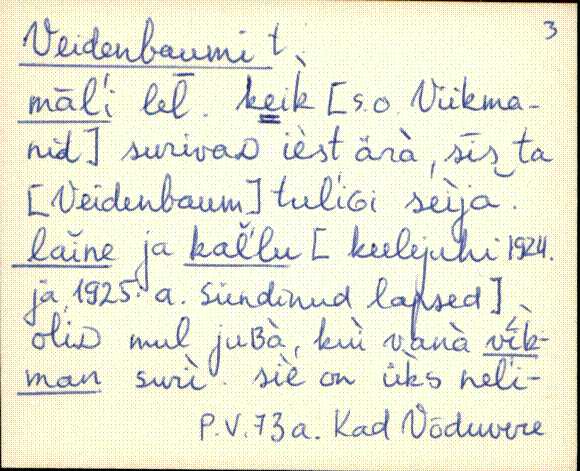 3
Veidenbaumi t.
māl'i lel̄. keìk [s.o. Viikma-
nid] surivaᴅ ièst ärà, sīs‿ta
[Veidenbaum] tul'iɢi seìja.
laĭne ja kal'l'u [keelejuhi 1924.
ja 1925. a. sündinud lapsed]
oliᴅ mul juʙà, kuì vanà vīk-
man surì. siè on üks nel'i-
P.V. 73 a. Kad Võduvere